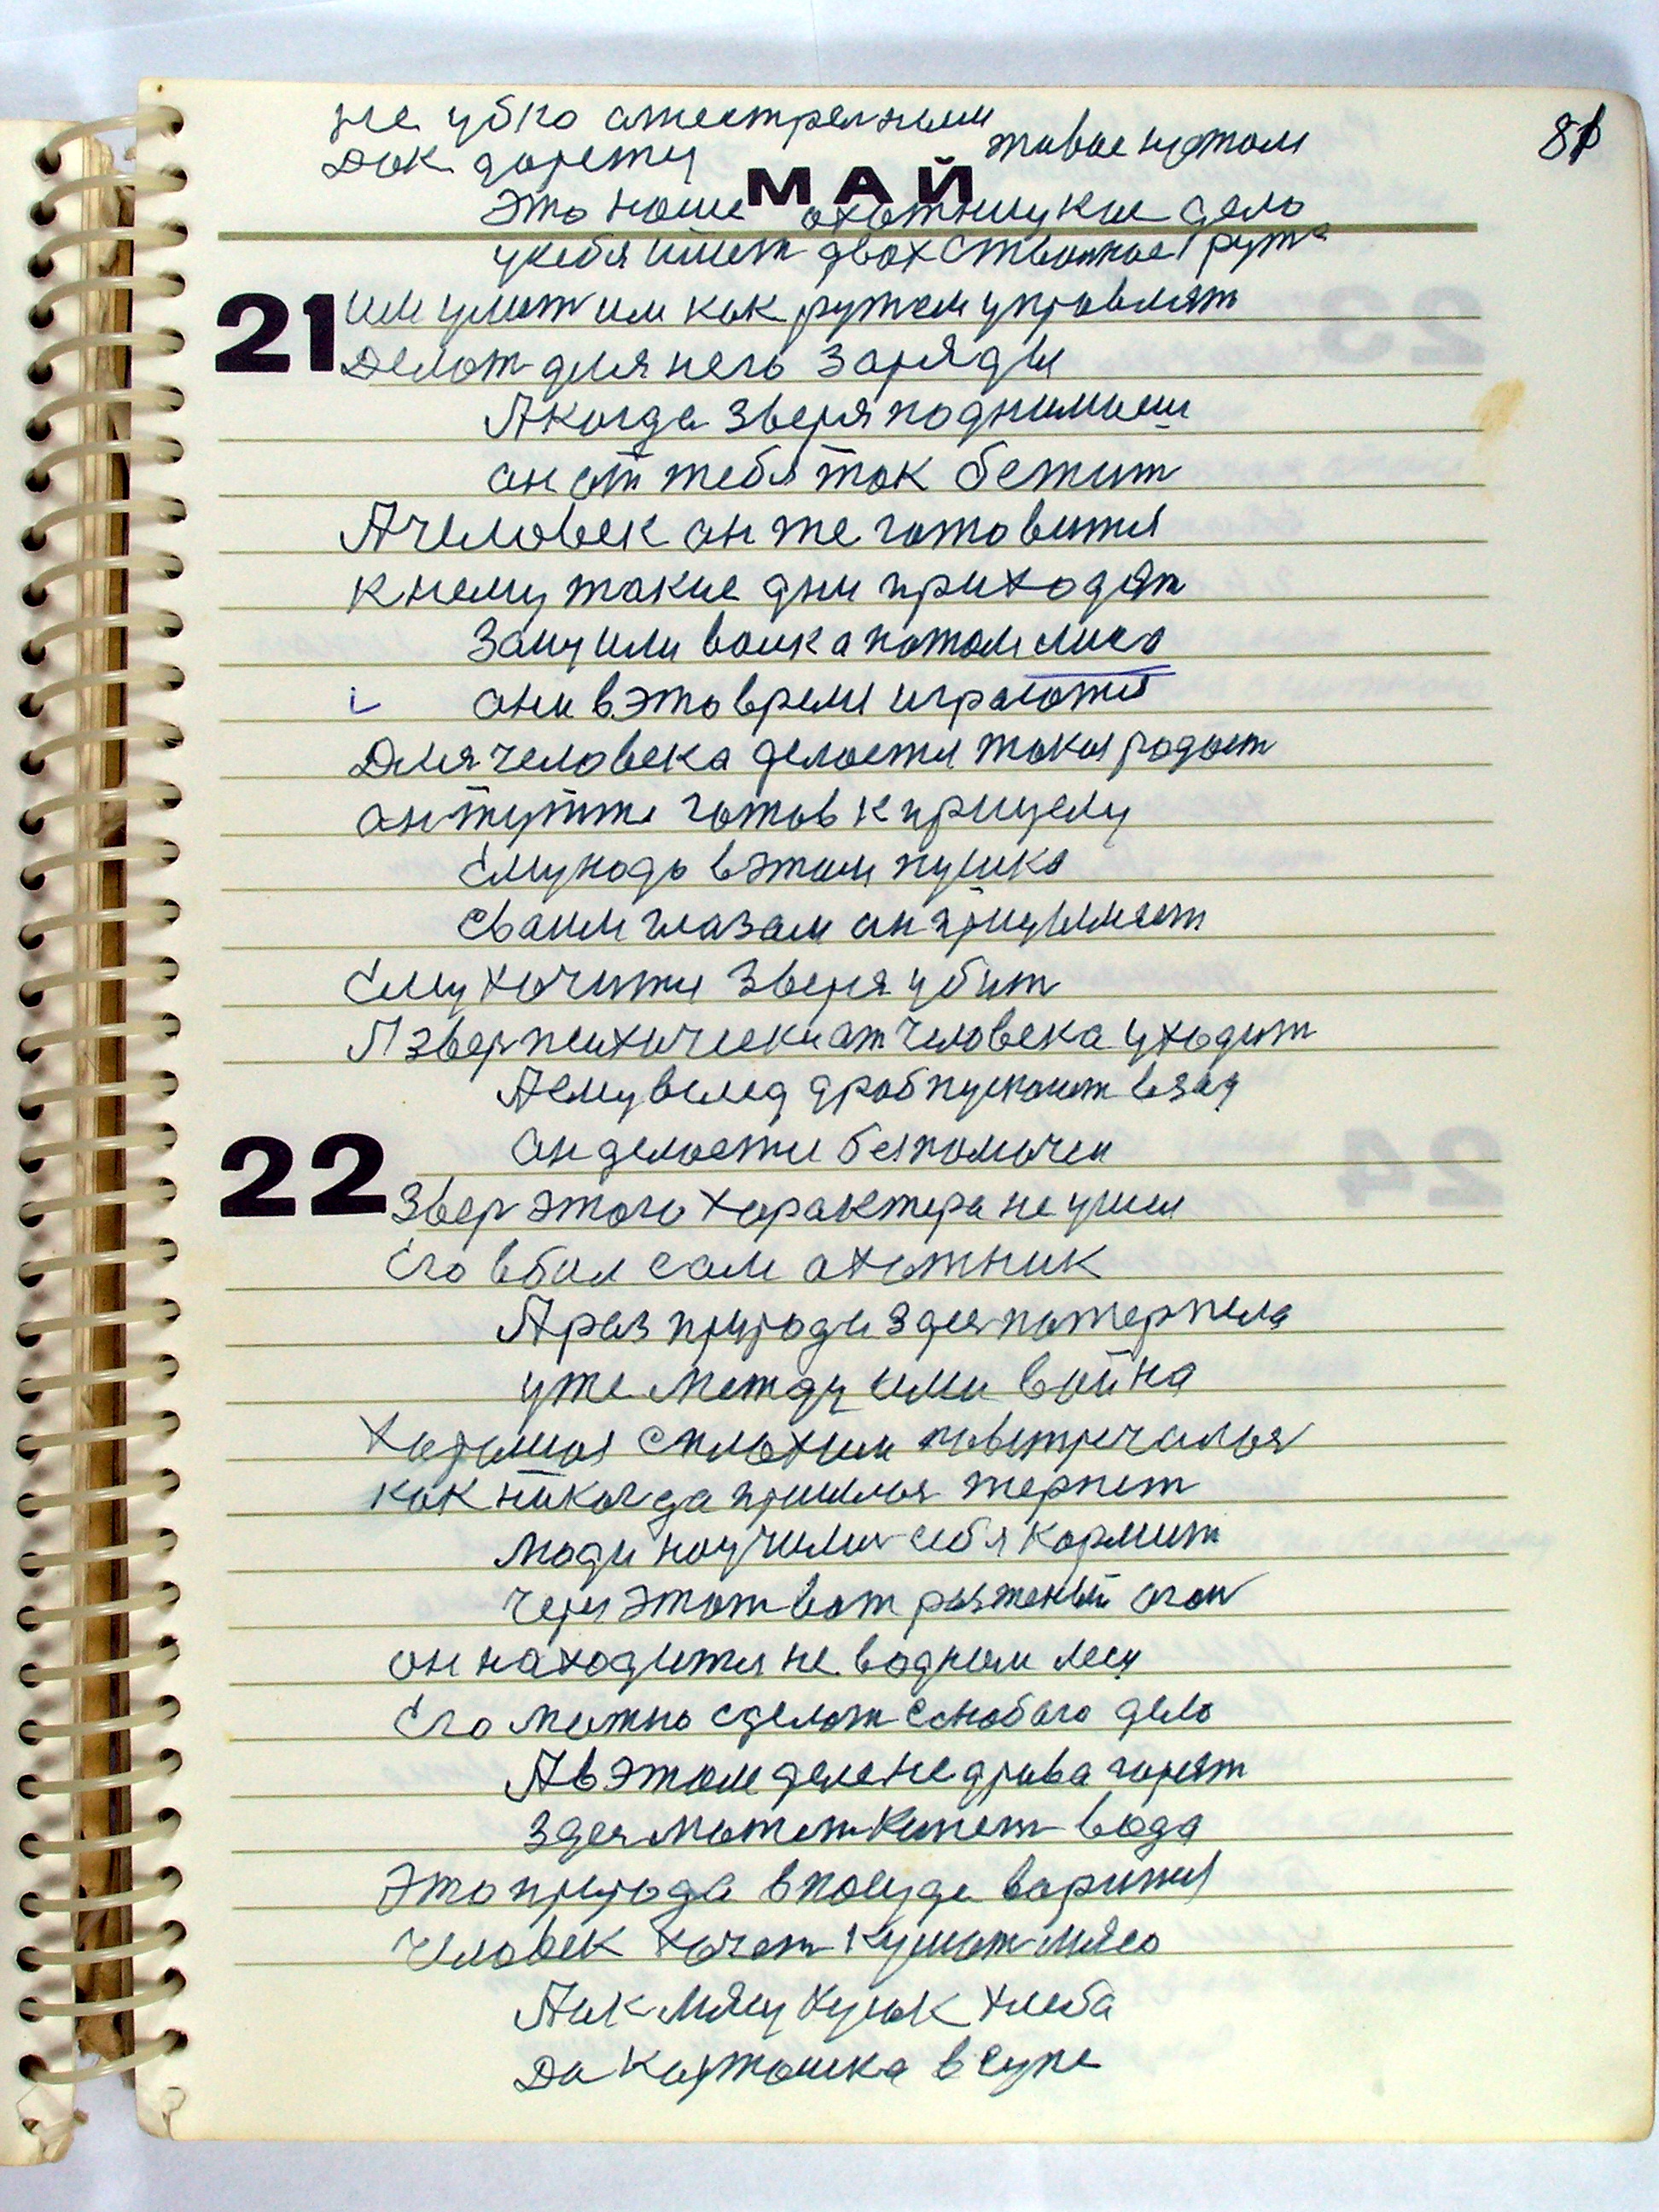 81
не убю атестрелнили
Док дорежу живое пужом
МАЙ
Это наше охотничкие дело
у себя имет двох ствольное ружа
21
им умет им как ружем управлят
Делот для него заряды
А когда зверя поднимиеш
он от тебя так бежит
А человек он же готовится
к нему такие дни приходят
Заицили волка потом лиса
они в это время играются
Для человека делоется такая родост
он тутже готов к прицелу
Ему нодо в этом пушка
сваим глазам он прицыляет
Ему хочится зверя убит
А звер психически от человека уходит
А ему вслед дроб пускоит взад
он делоется беспомочен
22
Звер этого характера не учил
Его вбил сам охотник
А раз природа здес потерпела
уже между ими война
Хорошоя с плохим повстречалоя
как никогда пришлоя терпет
Люди научились себя кормит
Через этот вот разженый огон
он находится не водном лесу
Его можно сделат с любого дело
А в этом деле не дрова горят
здес может кипет вода
Это природа в посуде варится
Человек хочет кушат мясо
А ик мясу кусок хлеба
Да картошка в супе